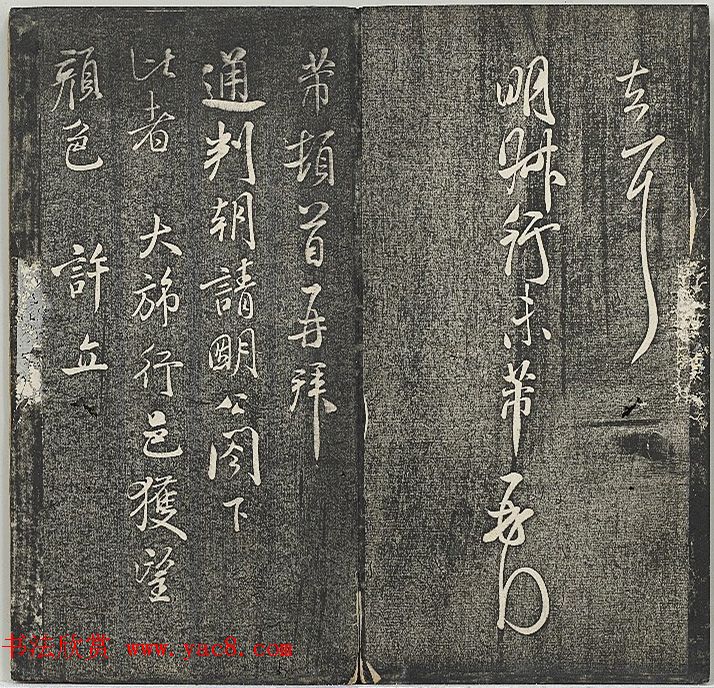 明舛行末芾再
芾頓首再拜
通判朝請明公閣下
比者 大旆行邑獲望
顏色 許立
书法欣赏 www.yac8.com